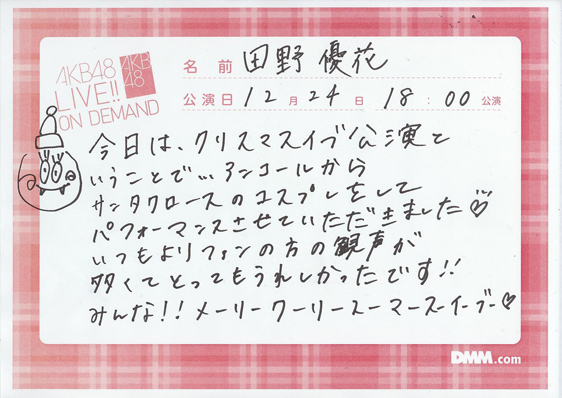 AKB48
LIVE!!
ON DEMAND
AKB
48
名前 田野優花
公演日 12月24日 18:00公演
今日は、クリスマスイブ公演と
いうことで…アンコールから
サンタクロースのコスプレをして
パフォーマンスさせていただきました♡
いつもよりファンの方の観声が
多くてとってもうれしかったです!!
みんな!!メーリークーリースーマースーイーブー♡
DMM.com